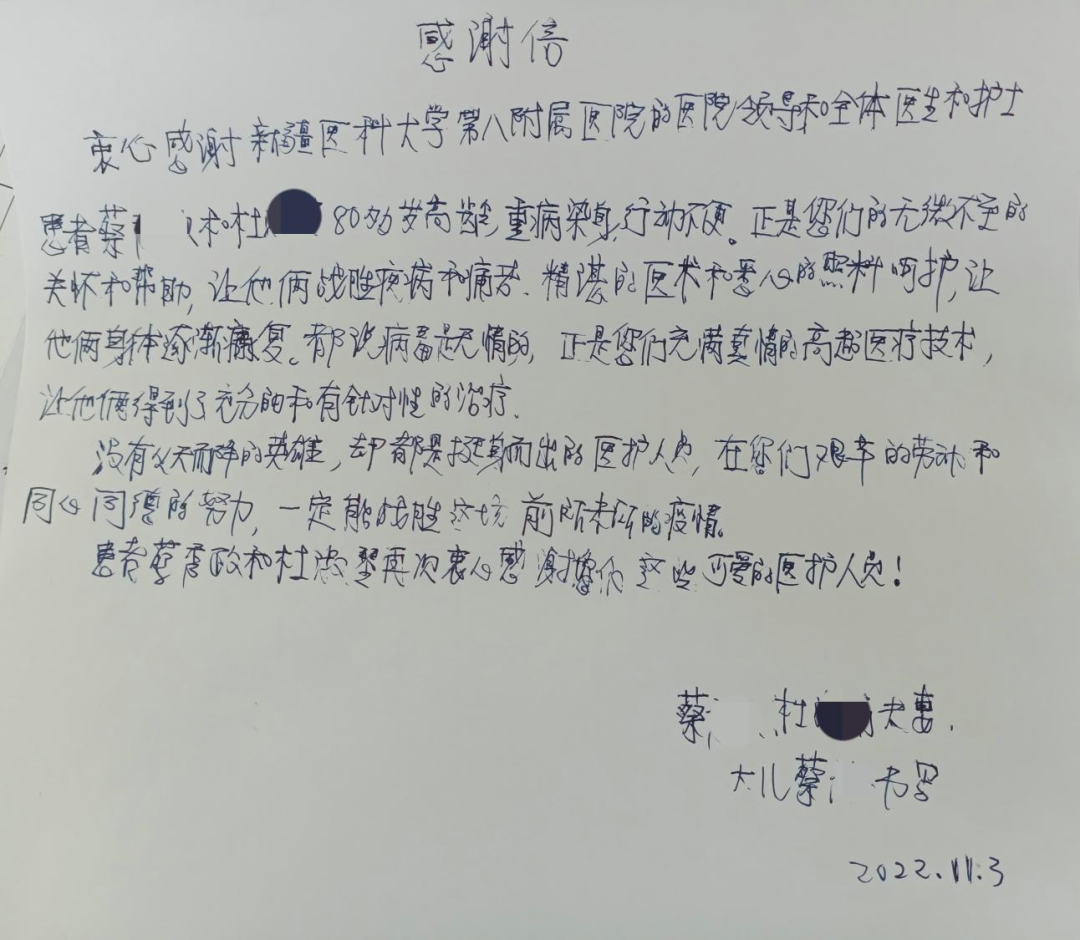 感谢信
衷心感谢新疆医科大学第八附属医院的医院领导和全体医生和护士
患者蔡 和杜 80多岁高龄,重病染身,行动不便。正是您们的无微不至的
关怀和帮助,让他俩战胜疾病和痛苦.精湛的医术和悉心的照料呵护,让
他俩身体逐渐康复。都说病毒是无情的,正是您们充满真情的高超医疗技术,
让他俩得到了充分的和有针对性的治疗.
没有从天而降的英雄,却都是挺身而出的医护人员,在您们艰辛的劳动和
同心同德的努力,一定能战胜这场前所未所的疫情。
患者蔡 政和杜 再次衷心感谢您们这些可爱的医护人员!
蔡 杜 夫妻.
大儿蔡 书写
2022.11.3